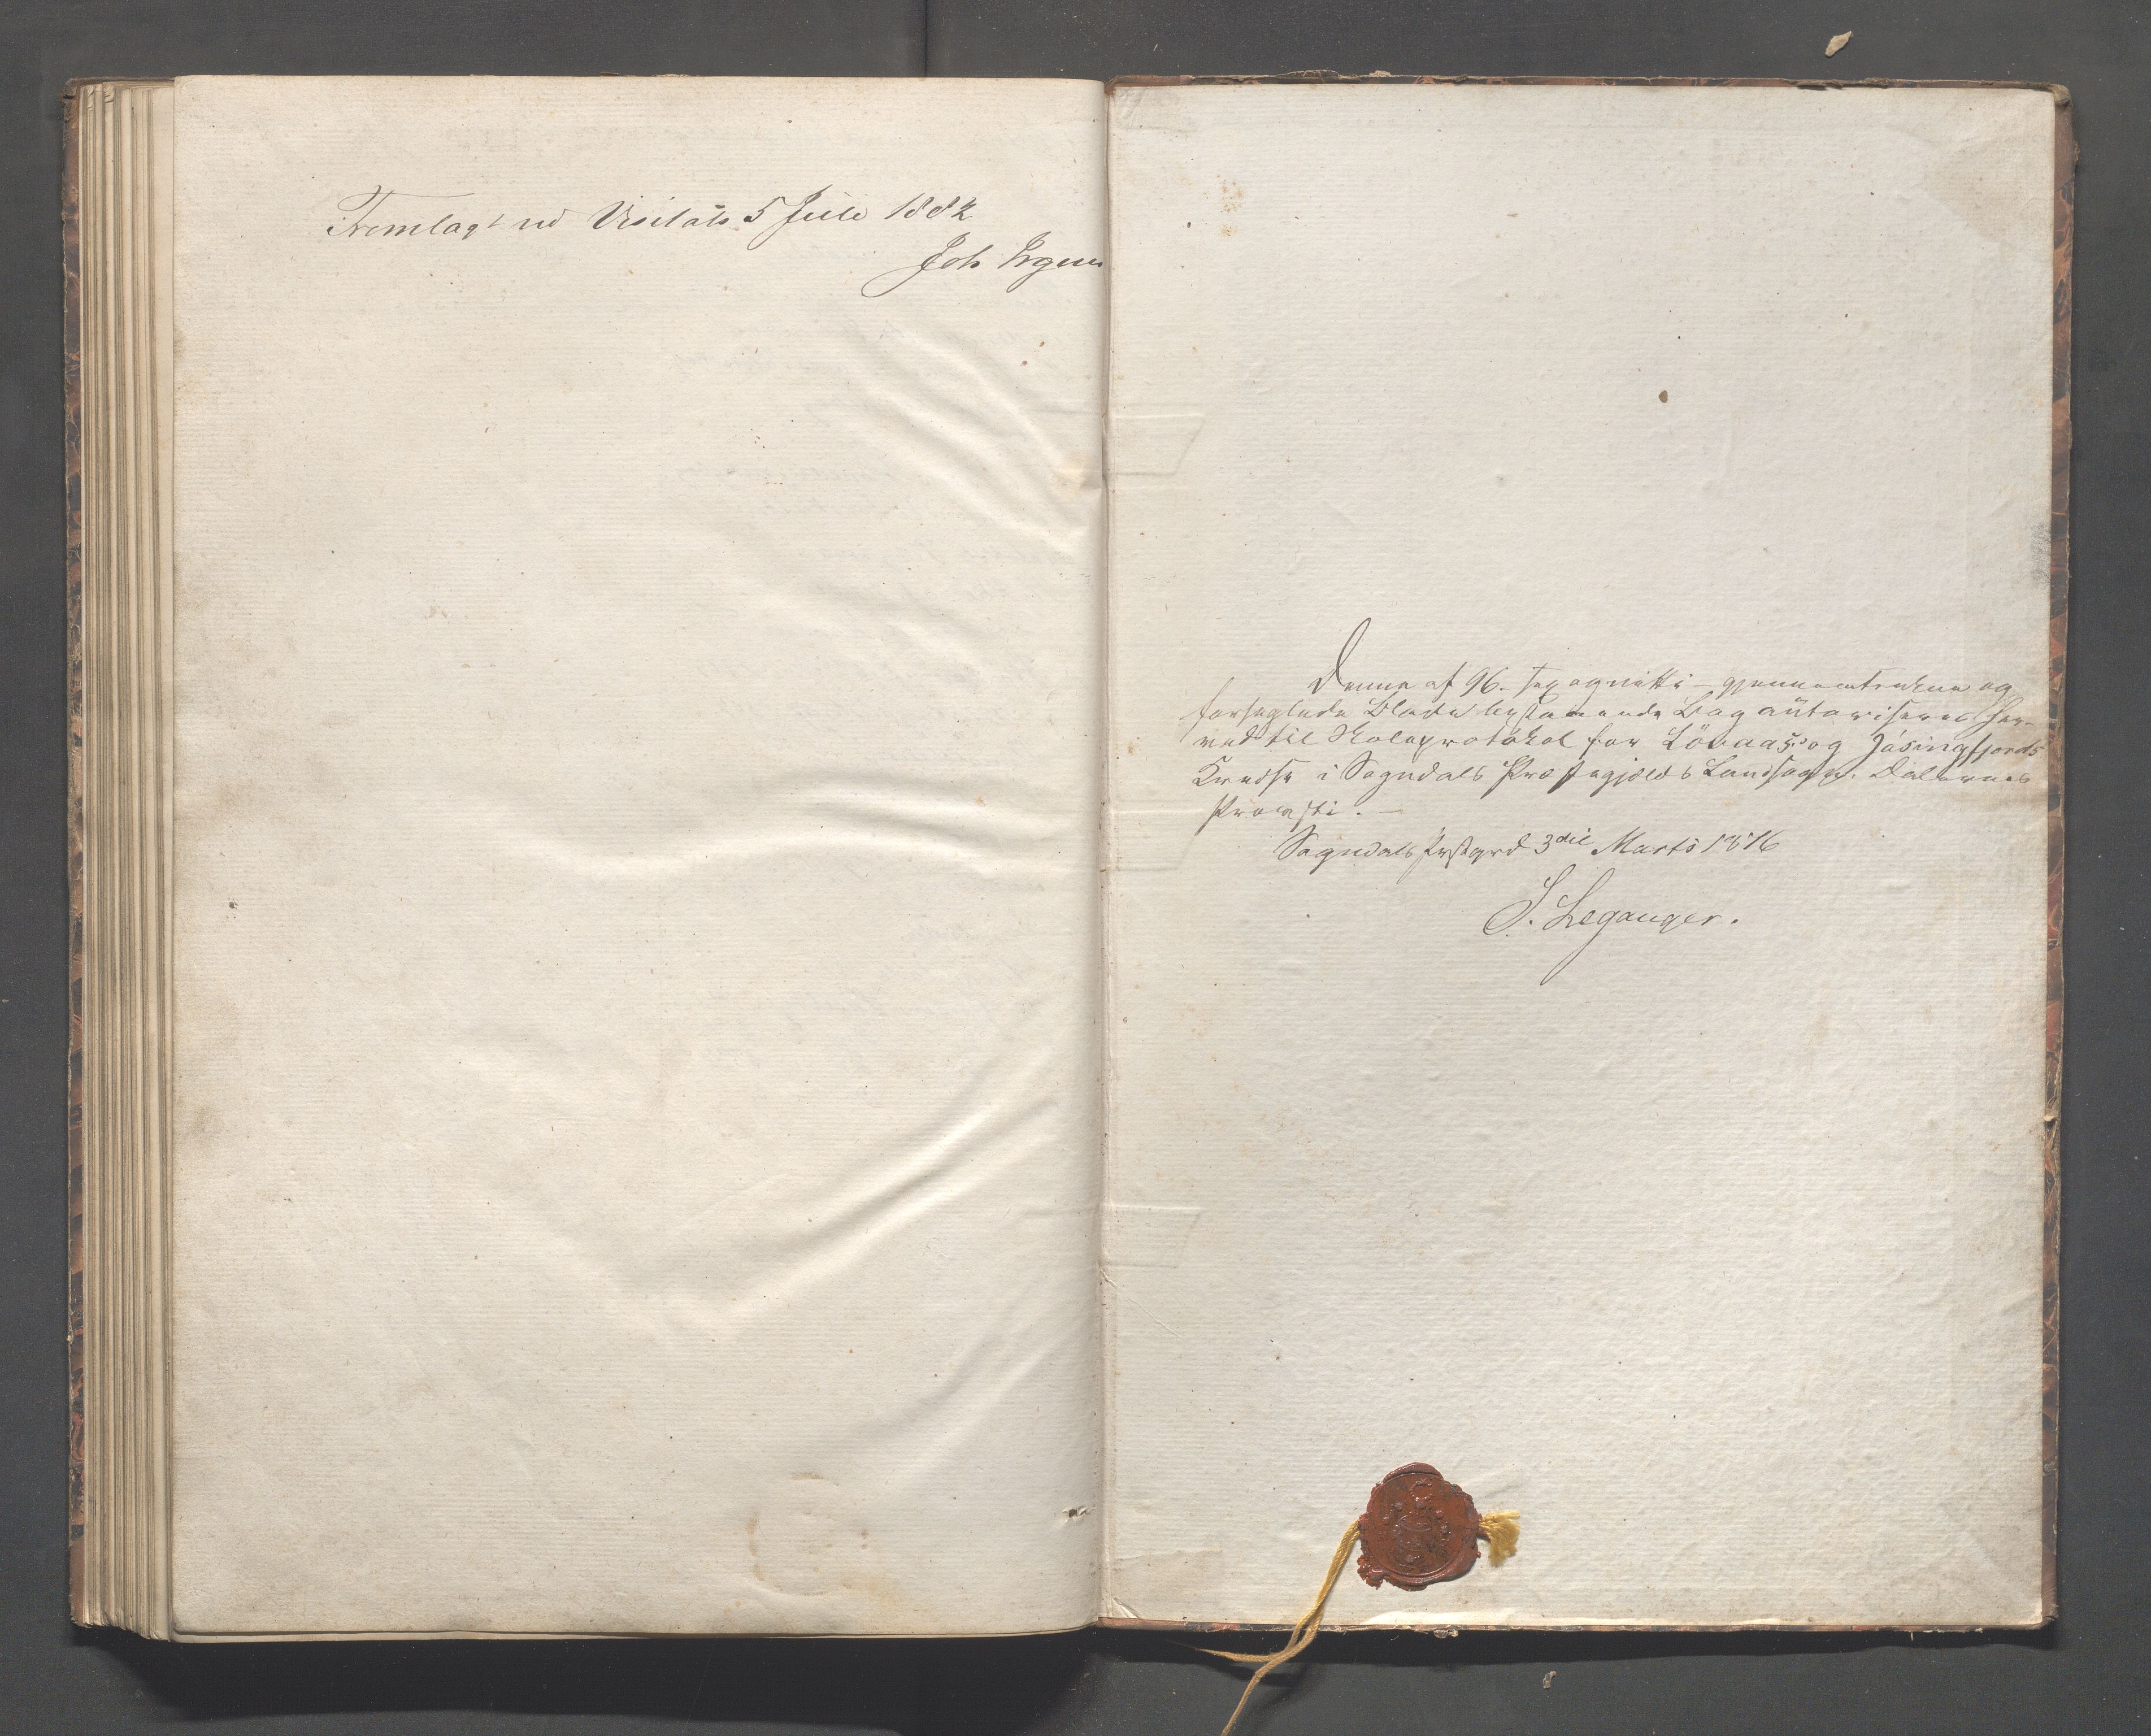 Fremlagt ved Visitats 5 Juli 1882
Joh Irgens
Denne af 96 – sex og nitti – gjennemtrukne og
forseglede Blade bestaaende Bog autoriseres her-
ved til Skoleprotokol for Lövaas og Jösingfjords
Kredse i Sogndals Præstegjelds Landsogn, Dalernes
Provsti. –
Sogndals Prstgrd 3die Marts 1876
S. Leganger.